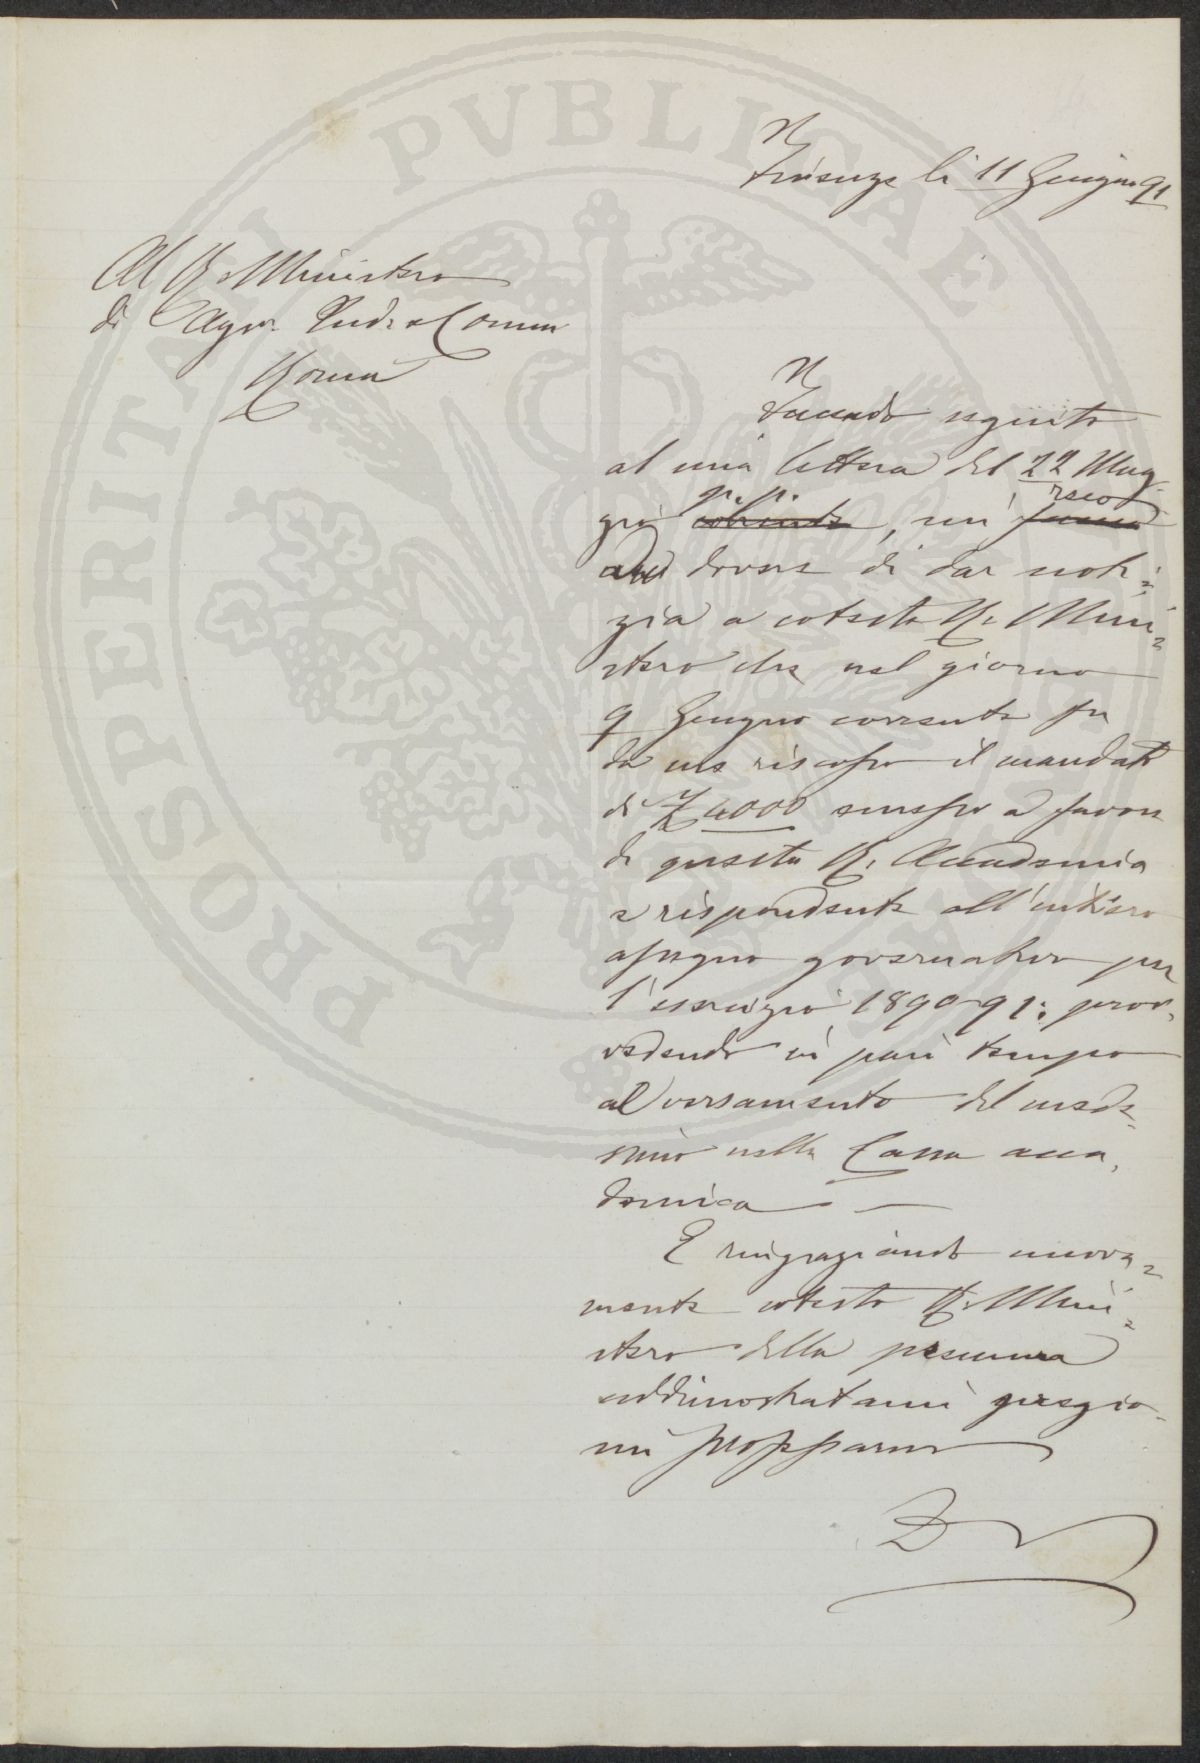 Firenze li 11 Giugno 91
Al R. Ministero
di Agr. Ind. e Comm
Roma
Facendo seguito
al mia lettera del 22 Mag-
gio p. p., mi reco
a dovere di dar noti=
zia a cotesto R. Mini=
stero che nel giorno
9 Giugno corrente fu
da me riscosso il mandato
di £ 4000 emesso a favore
di questa R. Accademia
e rispondente all'intiero
assegno governativo per
l'esercizio 1890-91: prov-
vedendo in pari tempo
al versamento del mede-
simo nella Cassa acca-
demica —
E ringraziando nuova=
mente cotesto R. Mini=
stero della premura
addimostratami pregio-
mi professarmi
PROSPERITATI PVBLICAE AVGENDAE